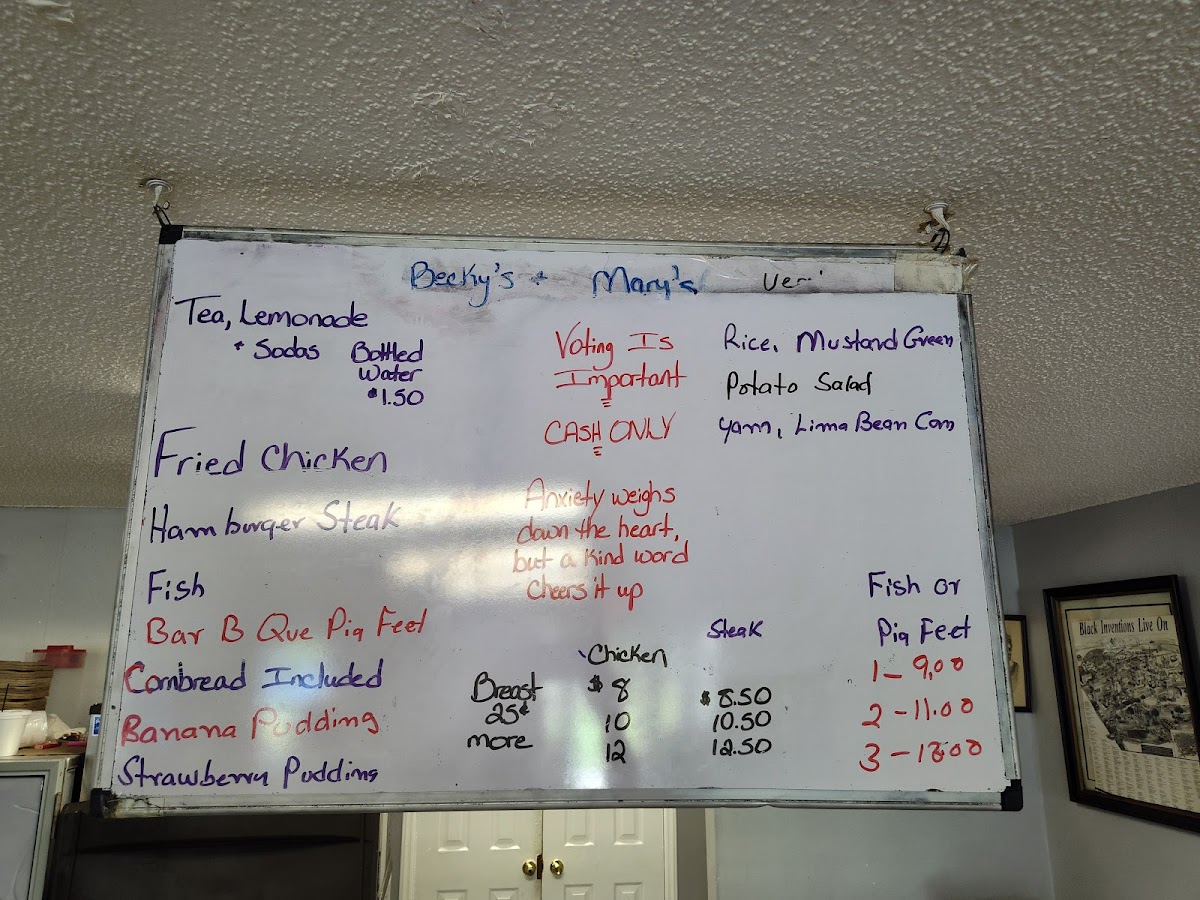 Becky's + Mary's
Tea, Lemonade
+ Sodas Bottled
Water
$1.50
Fried Chicken
Hamburger Steak
Fish
Bar B Que Pig Feet
Cornbread Included
Banana Pudding
Strawberry Pudding
Voting Is
Important
CASH ONLY
Anxiety weighs
down the heart,
but a kind word
cheers it up
Rice, Mustard Green
Potato Salad
Yam, Lima Bean Corn
Breast
25¢
more
Chicken
$8
10
12
Steak
$8.50
10.50
12.50
Fish or
Pig Feet
1 - 9.00
2 - 11.00
Black Inventions Live On